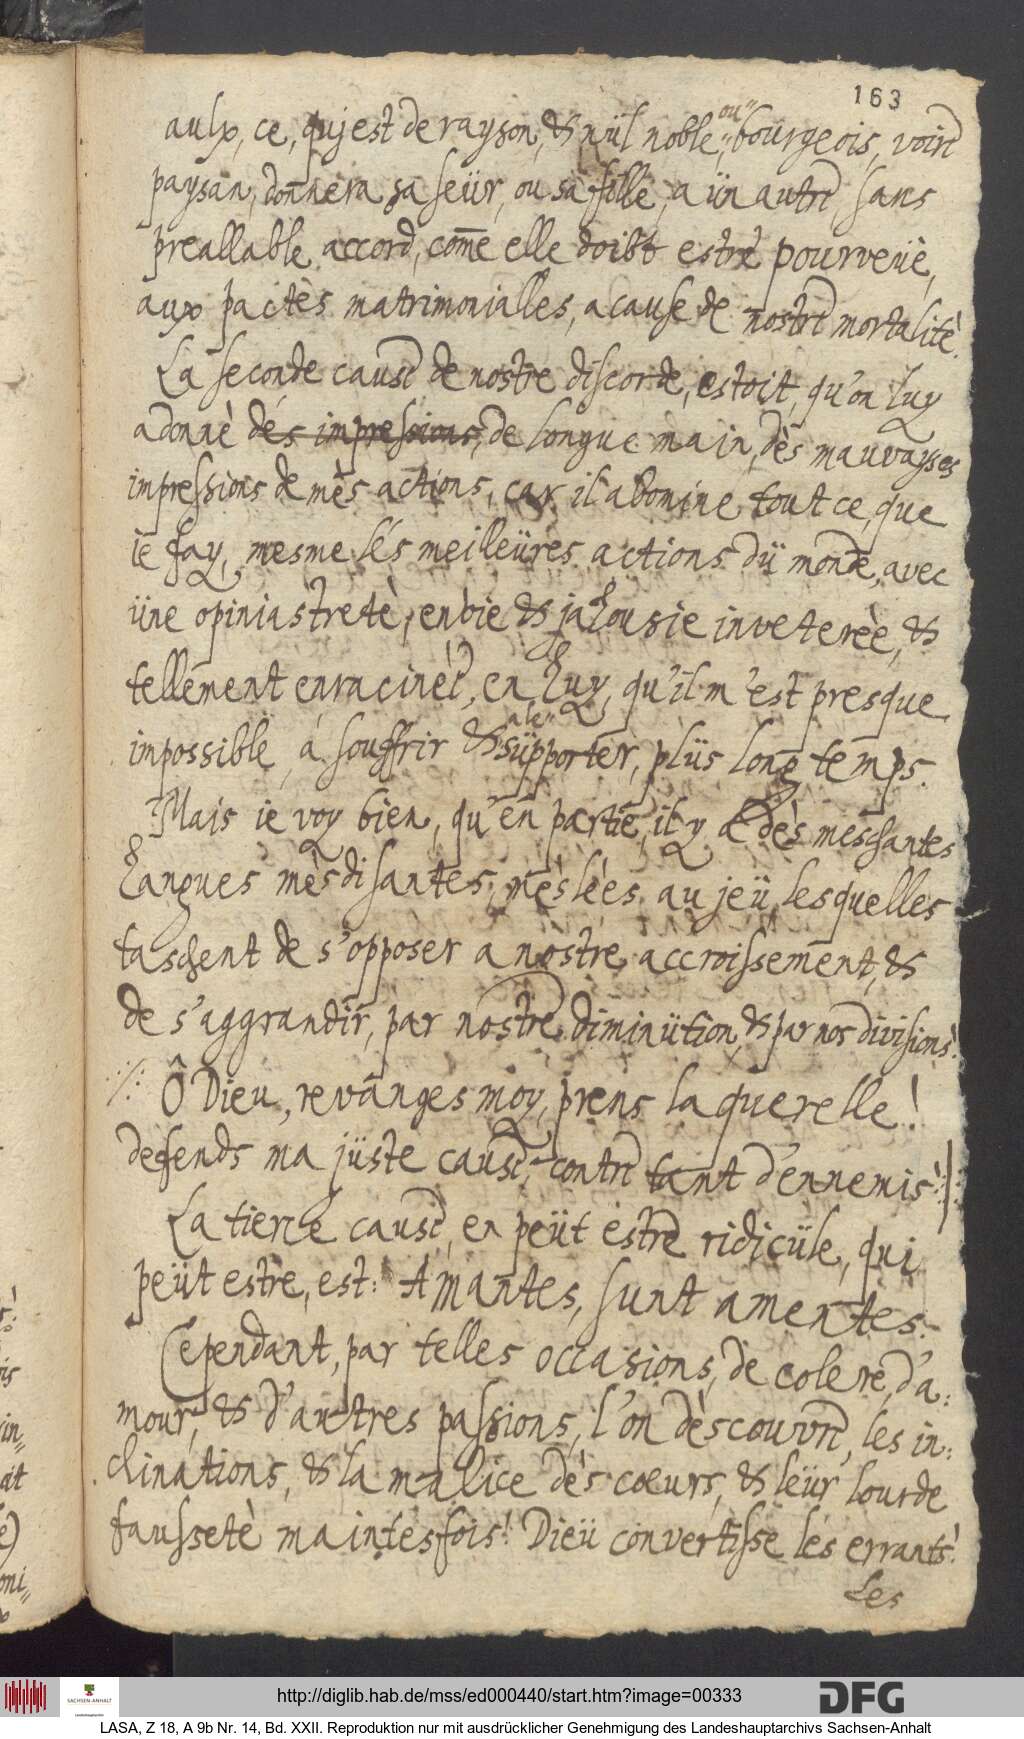 163
aulx, ce, quj est de rayson, & nül noble, ou" bourgeois, voire
paysan, donnera sa seür, ou sa fille, a ün autre, sans
preallable accord, com̄e elle doibt estre pourveüe,
aux pactes matrimonialles, a cause de nostre mortalitè.
La seconde cause de nostre discorde, estoit, qu'on luy
a donnè des impressions, de longue main, dès mauvayses
impressions de mès actions, car il abomine tout ce, que
ie fay, mesme lés meilleüres actions dü monde, avec
üne opiniastretè, envie & jalousie inveterèe, &
tellement enracinèe, en luy, qu'il m'est presque
impossible, á souffrir & a le" süpporter, plüs long temps.
Mais ie voy bien, qu'en partie, il y a dès meschantes
langues mèsdisantes, mèslèes au jeü, lesquelles
taschent de s'opposer a nostre accroissement, &
de s'aggrandir, par nostre diminütion, & par nos divisions.
Ô Dieu, revanges moy, prens la querelle!
defends ma jüste cause, contre tant d'ennemis!
La tierce cause, en peüt estre ridicüle, qui
peüt estre, est: Amantes, sunt amentes.
Cependant, par telles occasions, de colere, d'a:
mour, & d'autres passions, l'on dèscouvre, les in:
clinations, & la malice dès cœurs, & leür lourde
faussetè maintesfois! Dieü convertisse lés errants!
Les
http://diglib.hab.de/mss/ed000440/start.htm?image=00333
DFG
SACHSEN-ANHALT
LASA, Z 18, A 9b Nr. 14, Bd. XXII. Reproduktion nur mit ausdrücklicher Genehmigung des Landeshauptarchivs Sachsen-Anhalt